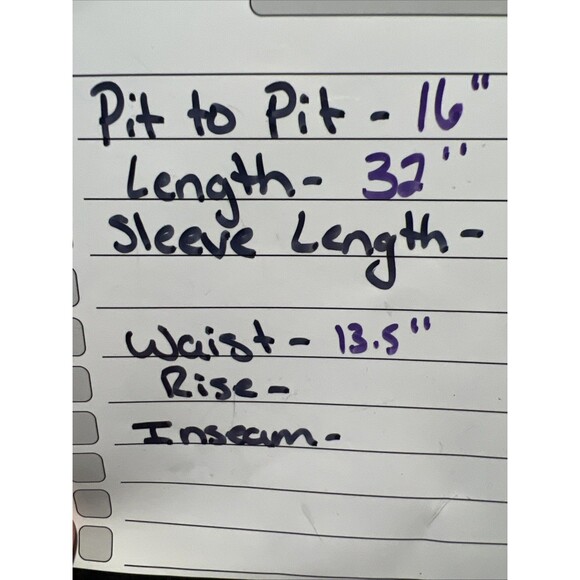 Pit to Pit - 16"
Length - 32"
Sleeve Length -
Waist - 13.5"
Rise -
Inseam -